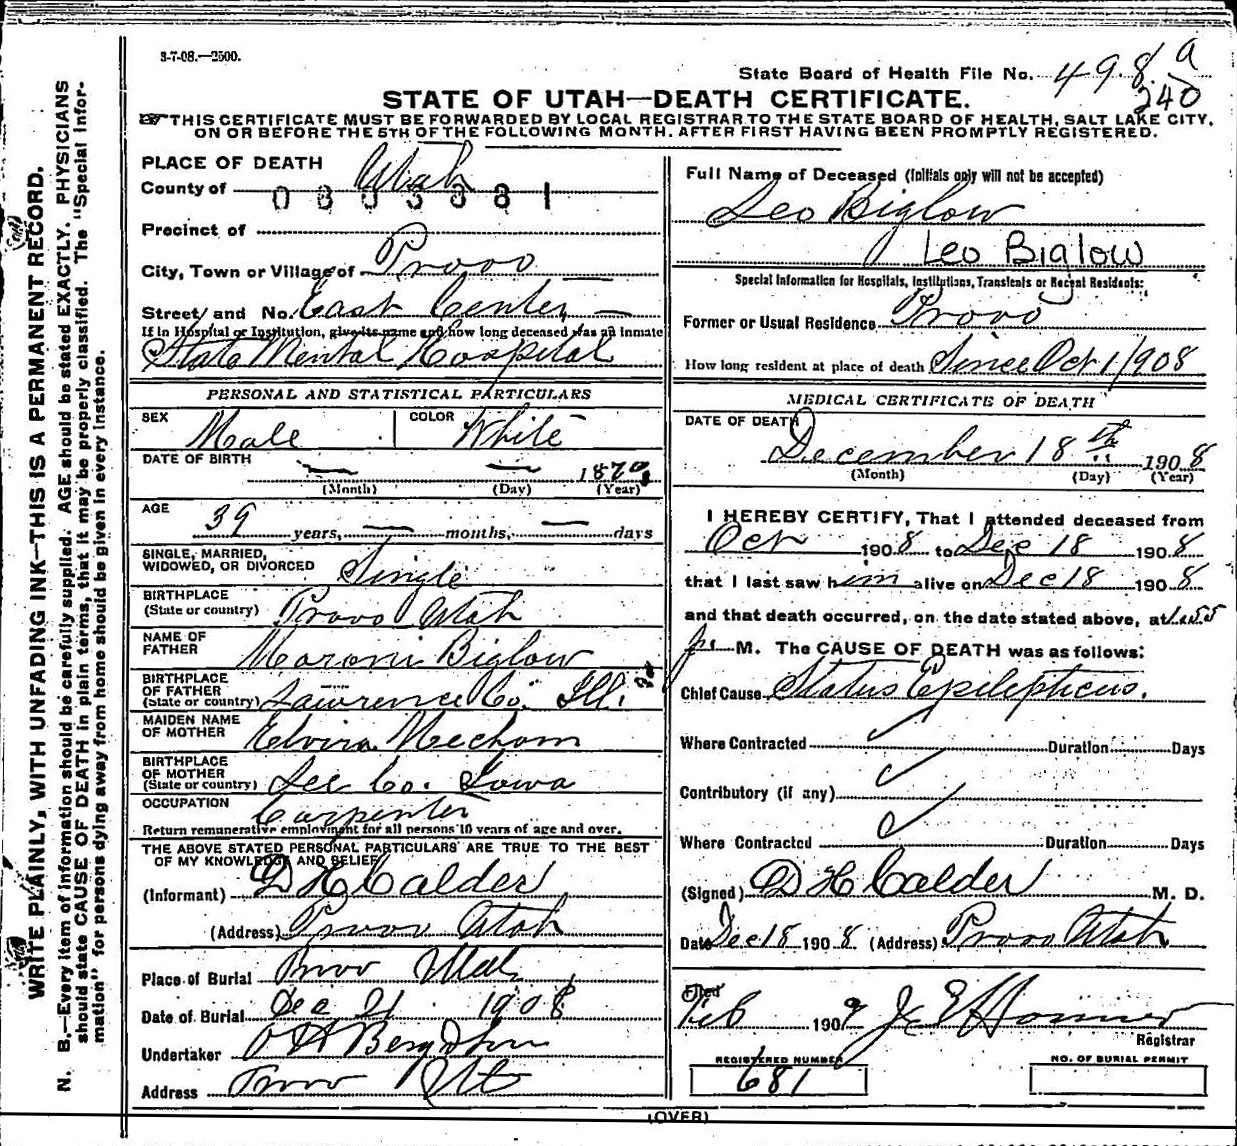 3-7-08.—2500.
State Board of Health File No. 498 a
240
STATE OF UTAH—DEATH CERTIFICATE.
THIS CERTIFICATE MUST BE FORWARDED BY LOCAL REGISTRAR TO THE STATE BOARD OF HEALTH, SALT LAKE CITY,
ON OR BEFORE THE 5TH OF THE FOLLOWING MONTH, AFTER FIRST HAVING BEEN PROMPTLY REGISTERED.
WRITE PLAINLY, WITH UNFADING INK—THIS IS A PERMANENT RECORD.
N. B.—Every item of information should be carefully supplied. AGE should be stated EXACTLY. PHYSICIANS
should state CAUSE OF DEATH in plain terms, that it may be properly classified. The "Special Infor-
mation" for persons dying away from home should be given in every instance.
PLACE OF DEATH
County of Utah
Precinct of
City, Town or Village of Provo
Street and No. East Center
If in Hospital or Institution, give its name and how long deceased was an inmate
State Mental Hospital
PERSONAL AND STATISTICAL PARTICULARS
SEX Male COLOR White
DATE OF BIRTH — — 187
(Month) (Day) (Year)
AGE 39 years, — months, — days
SINGLE, MARRIED,
WIDOWED, OR DIVORCED Single
BIRTHPLACE
(State or country) Provo Utah
NAME OF
FATHER Moroni Biglow
BIRTHPLACE
OF FATHER
(State or country) Lawrence Co. Ill.
MAIDEN NAME
OF MOTHER Elvira Mecham
BIRTHPLACE
OF MOTHER
(State or country) Lee Co. Iowa
OCCUPATION Carpenter
Return remunerative employment for all persons 10 years of age and over.
THE ABOVE STATED PERSONAL PARTICULARS ARE TRUE TO THE BEST
OF MY KNOWLEDGE AND BELIEF
(Informant) D H Calder
(Address) Provo Utah
Place of Burial Provo Utah
Date of Burial Dec 21 1908
Undertaker O H Berg
Address Provo Ut
Full Name of Deceased (Initials only will not be accepted)
Leo Biglow
Leo Biglow
Special Information for Hospitals, Institutions, Transients or Recent Residents:
Former or Usual Residence Provo
How long resident at place of death Since Oct 1/908
MEDICAL CERTIFICATE OF DEATH
DATE OF DEATH
December 18th 1908
(Month) (Day) (Year)
I HEREBY CERTIFY, That I attended deceased from
Oct 1908 to Dec 18 1908
that I last saw him alive on Dec 18 1908
and that death occurred, on the date stated above, at
p. M. The CAUSE OF DEATH was as follows:
Chief Cause Status Epilepticus.
Where Contracted Duration Days
Contributory (if any)
Where Contracted Duration Days
(Signed) D H Calder M. D.
Date Dec 18 1908 (Address) Provo Utah
Filed
Feb 1909 J E Hosmer
Registrar
REGISTERED NUMBER
681
NO. OF BURIAL PERMIT
(OVER)